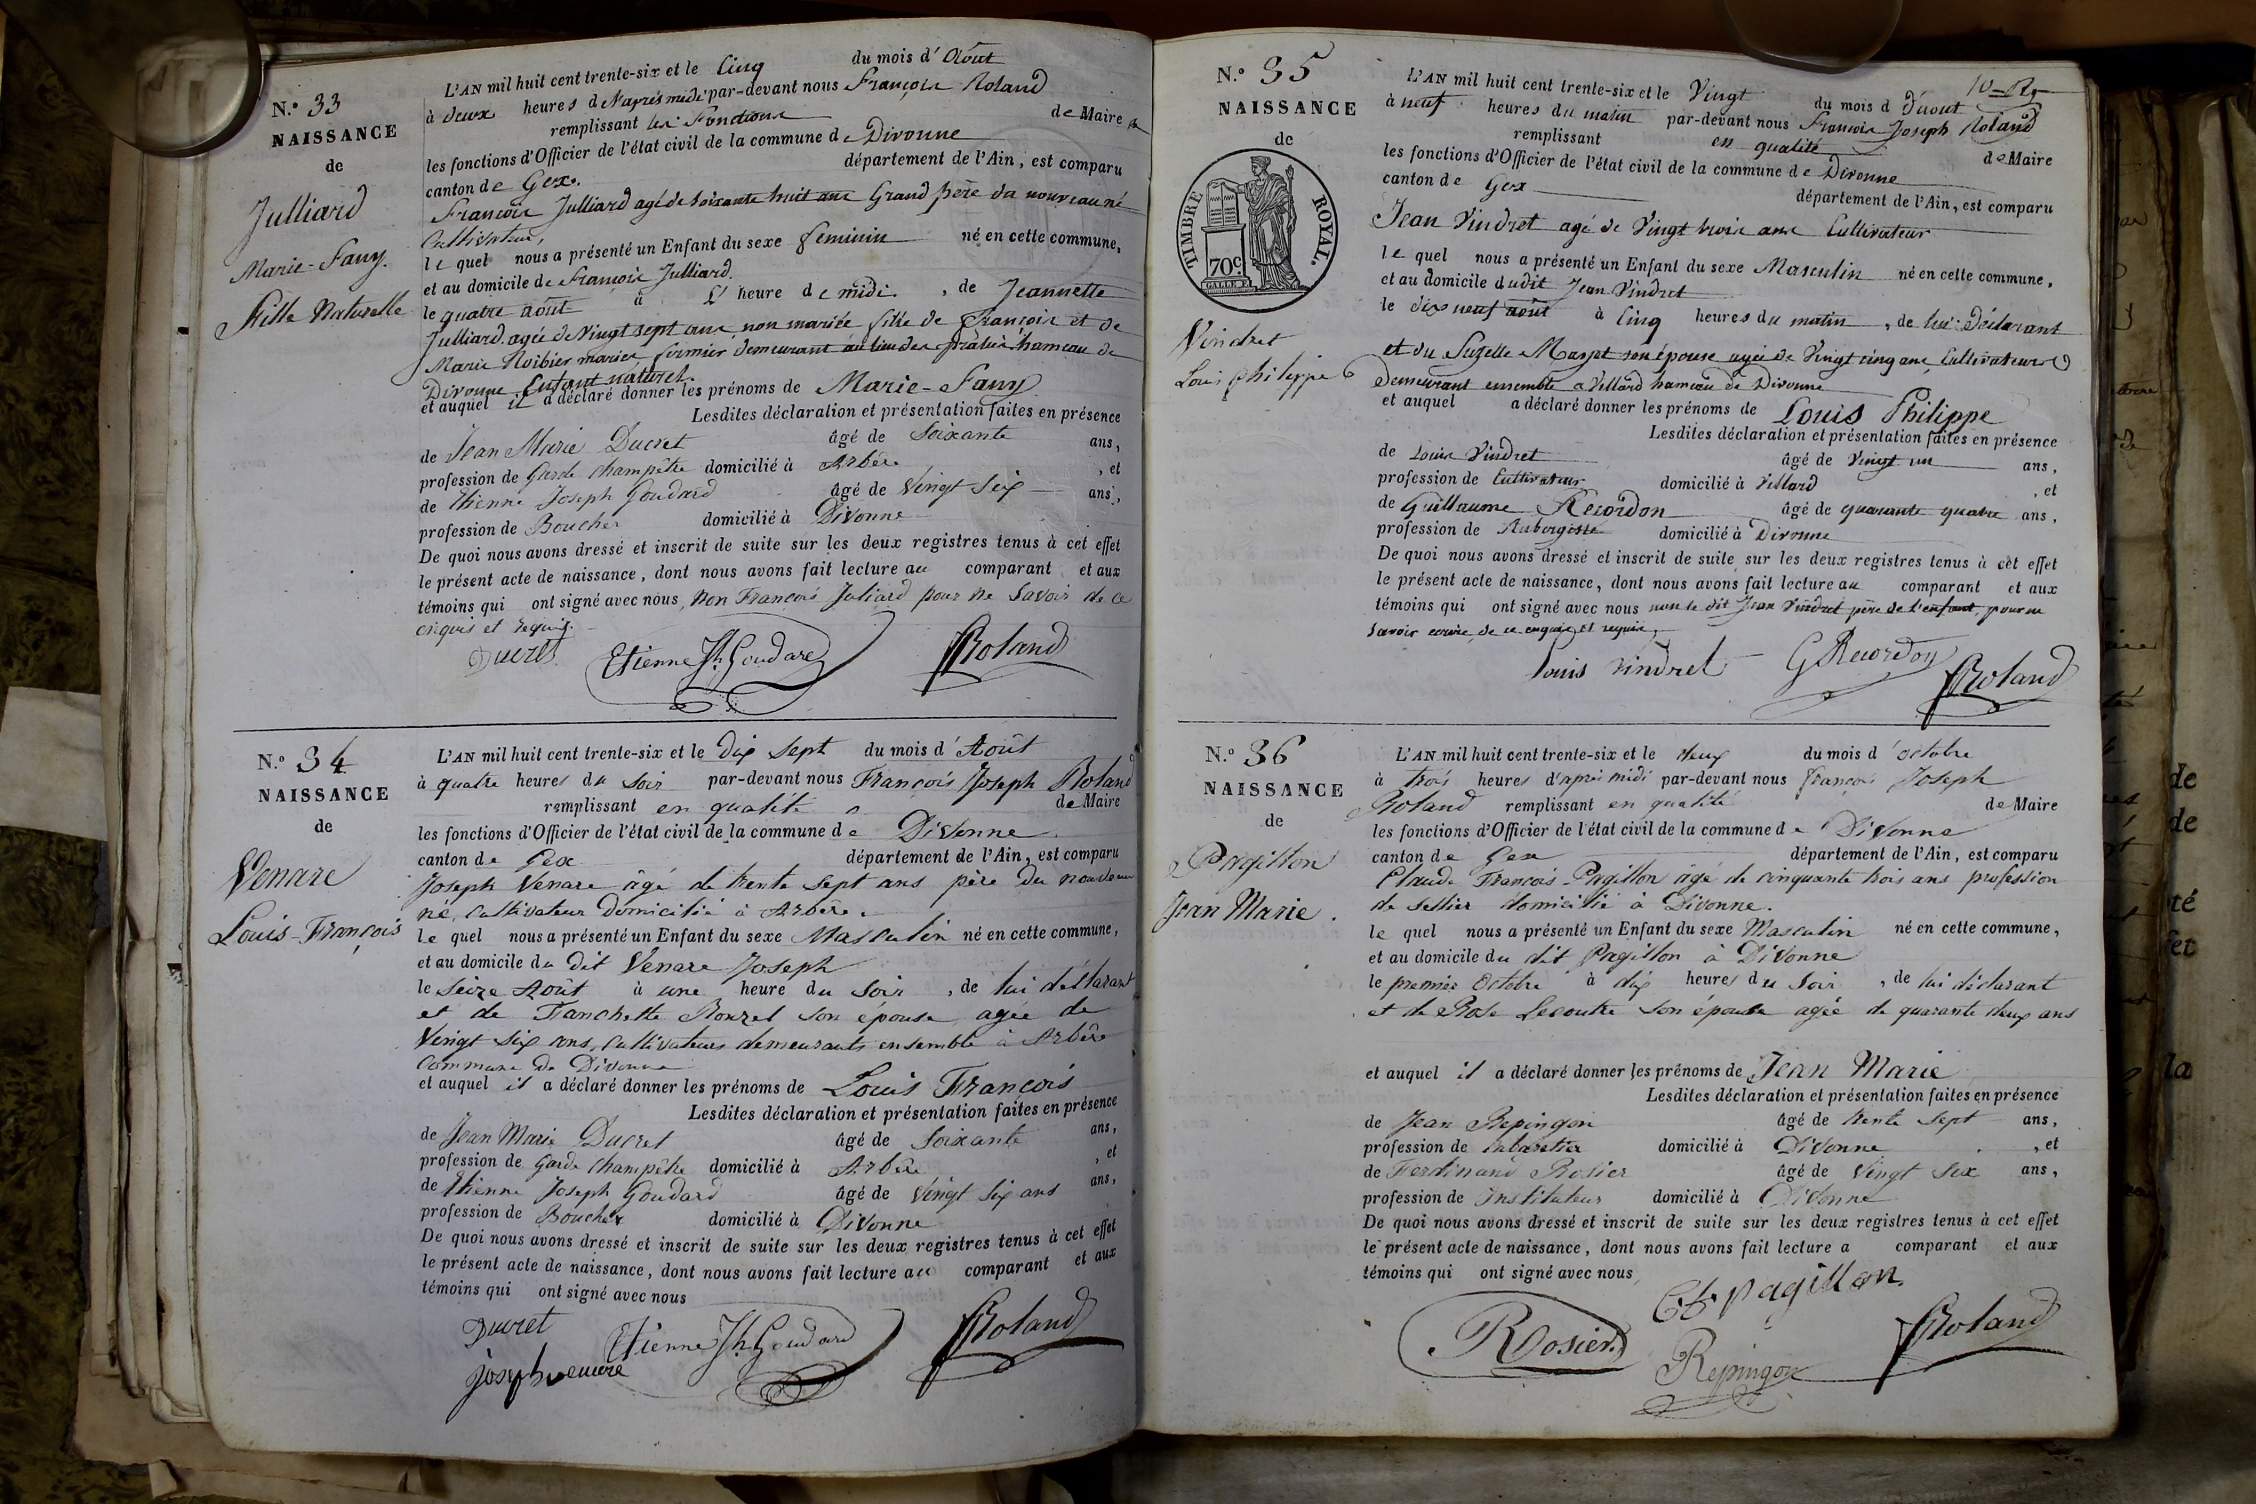 N.o 33
NAISSANCE
de
Julliard
Marie-Fany.
Fille Naturelle
L'AN mil huit cent trente-six et le Cinq du mois d'Août
à deux heures d par-devant nous François Roland
remplissant les Fonctions de Maire
les fonctions d'Officier de l'état civil de la commune de Divonne
canton de Gex. département de l'Ain, est comparu
François Julliard agé de soixante huit ans Grand père du nouveau né
Cultivateur,
le quel nous a présenté un Enfant du sexe feminin né en cette commune,
et au domicile de François Julliard.
le quatre août à l' heure de midi , de Jeannette
Julliard agée de vingt sept ans, non mariée fille de François et de
Marie mariés, fermier demeurant au lieu des hameau de
Divonne Enfant naturel
et auquel il a déclaré donner les prénoms de Marie-Fany
Lesdites déclaration et présentation faites en présence
de Jean Marie Ducret âgé de Soixante ans,
profession de Garde champêtre domicilié à Arbère , et
de Etienne Joseph Goudard âgé de Vingt Six ans,
profession de Boucher domicilié à Divonne
De quoi nous avons dressé et inscrit de suite sur les deux registres tenus à cet effet
le présent acte de naissance, dont nous avons fait lecture au comparant et aux
témoins qui ont signé avec nous, non François Juliard pour ne Savoir de ce
enquis et requis.
Ducret Etienne Jh Goudard Roland
N.o 34
NAISSANCE
de
Venare
Louis-François
L'AN mil huit cent trente-six et le dix Sept du mois d'Août
à quatre heures du Soir par-devant nous François Joseph Roland
remplissant en qualité de Maire
les fonctions d'Officier de l'état civil de la commune de Divonne
canton de Gex département de l'Ain, est comparu
Joseph Venare âgé de trente Sept ans père du nouveau
né, cultivateur Domicilié à Arbère.
le quel nous a présenté un Enfant du sexe Masculin né en cette commune,
et au domicile du dit Venare Joseph
le Seize Août à une heure du Soir , de lui déclarant
et de Fanchette Son épouse agée de
Vingt Six ans, cultivateurs demeurants ensemble à Arbère
Commune de Divonne
et auquel il a déclaré donner les prénoms de Louis François
Lesdites déclaration et présentation faites en présence
de Jean Marie Ducret âgé de Soixante ans,
profession de Garde Champêtre domicilié à Arbère , et
de Etienne Joseph Goudard âgé de Vingt Six ans ans,
profession de Boucher domicilié à Divonne
De quoi nous avons dressé et inscrit de suite sur les deux registres tenus à cet effet
le présent acte de naissance, dont nous avons fait lecture au comparant et aux
témoins qui ont signé avec nous
Ducret Etienne Jh Goudard Roland
Joseph venare
N.o 35
NAISSANCE
de
TIMBRE ROYAL.
70c.
Vindret
Louis Philippe
L'AN mil huit cent trente-six et le Vingt du mois d d'août
à neuf heures du matin par-devant nous François Joseph Roland
remplissant en qualité de Maire
les fonctions d'Officier de l'état civil de la commune de Divonne
canton de Gex département de l'Ain, est comparu
Jean Vindret agé de Vingt trois ans Cultivateur
le quel nous a présenté un Enfant du sexe Masculin né en cette commune,
et au domicile dudit Jean Vindret
le dix neuf août à Cinq heures du matin , de lui Déclarant
et du Suzette son épouse agée de Vingt cinq ans, Cultivateurs
Demeurant ensemble a Villard hameau de Divonne
et auquel a déclaré donner les prénoms de Louis Philippe
Lesdites déclaration et présentation faites en présence
de Louis Vindret âgé de vingt un ans,
profession de Cultivateur domicilié à Villard , et
de Guillaume Recordon âgé de quarante quatre ans,
profession de Aubergiste domicilié à Divonne
De quoi nous avons dressé et inscrit de suite sur les deux registres tenus à cet effet
le présent acte de naissance, dont nous avons fait lecture au comparant et aux
témoins qui ont signé avec nous non le dit Jean Vindret père de l'enfant, pour ne
Savoir ecrire, de ce enquis et requis,
Louis vindret G Recordon Roland
N.o 36
NAISSANCE
de
Pagillon
Jean Marie.
L'AN mil huit cent trente-six et le deux du mois d'octobre
à trois heures d'après midi par-devant nous françois Joseph
Roland remplissant en qualité de Maire
les fonctions d'Officier de l'état civil de la commune de Divonne
canton de Gex département de l'Ain, est comparu
Claude François Pagillon agé de cinquante trois ans profession
de Sellier domicilié à Divonne.
le quel nous a présenté un Enfant du sexe Masculin né en cette commune,
et au domicile du dit Pagillon à Divonne
le premier Octobre à dix heures du Soir , de lui déclarant
et de Rose Lecoultre Son épouse agée de quarante deux ans
et auquel il a déclaré donner les prénoms de Jean Marie
Lesdites déclaration et présentation faites en présence
de Jean Repingon âgé de trente Sept ans,
profession de cabaretier domicilié à Divonne , et
de Ferdinand Rosier âgé de Vingt Six ans,
profession de instituteur domicilié à Divonne
De quoi nous avons dressé et inscrit de suite sur les deux registres tenus à cet effet
le présent acte de naissance, dont nous avons fait lecture a comparant et aux
témoins qui ont signé avec nous
pagillon
Rosier Repingon Roland